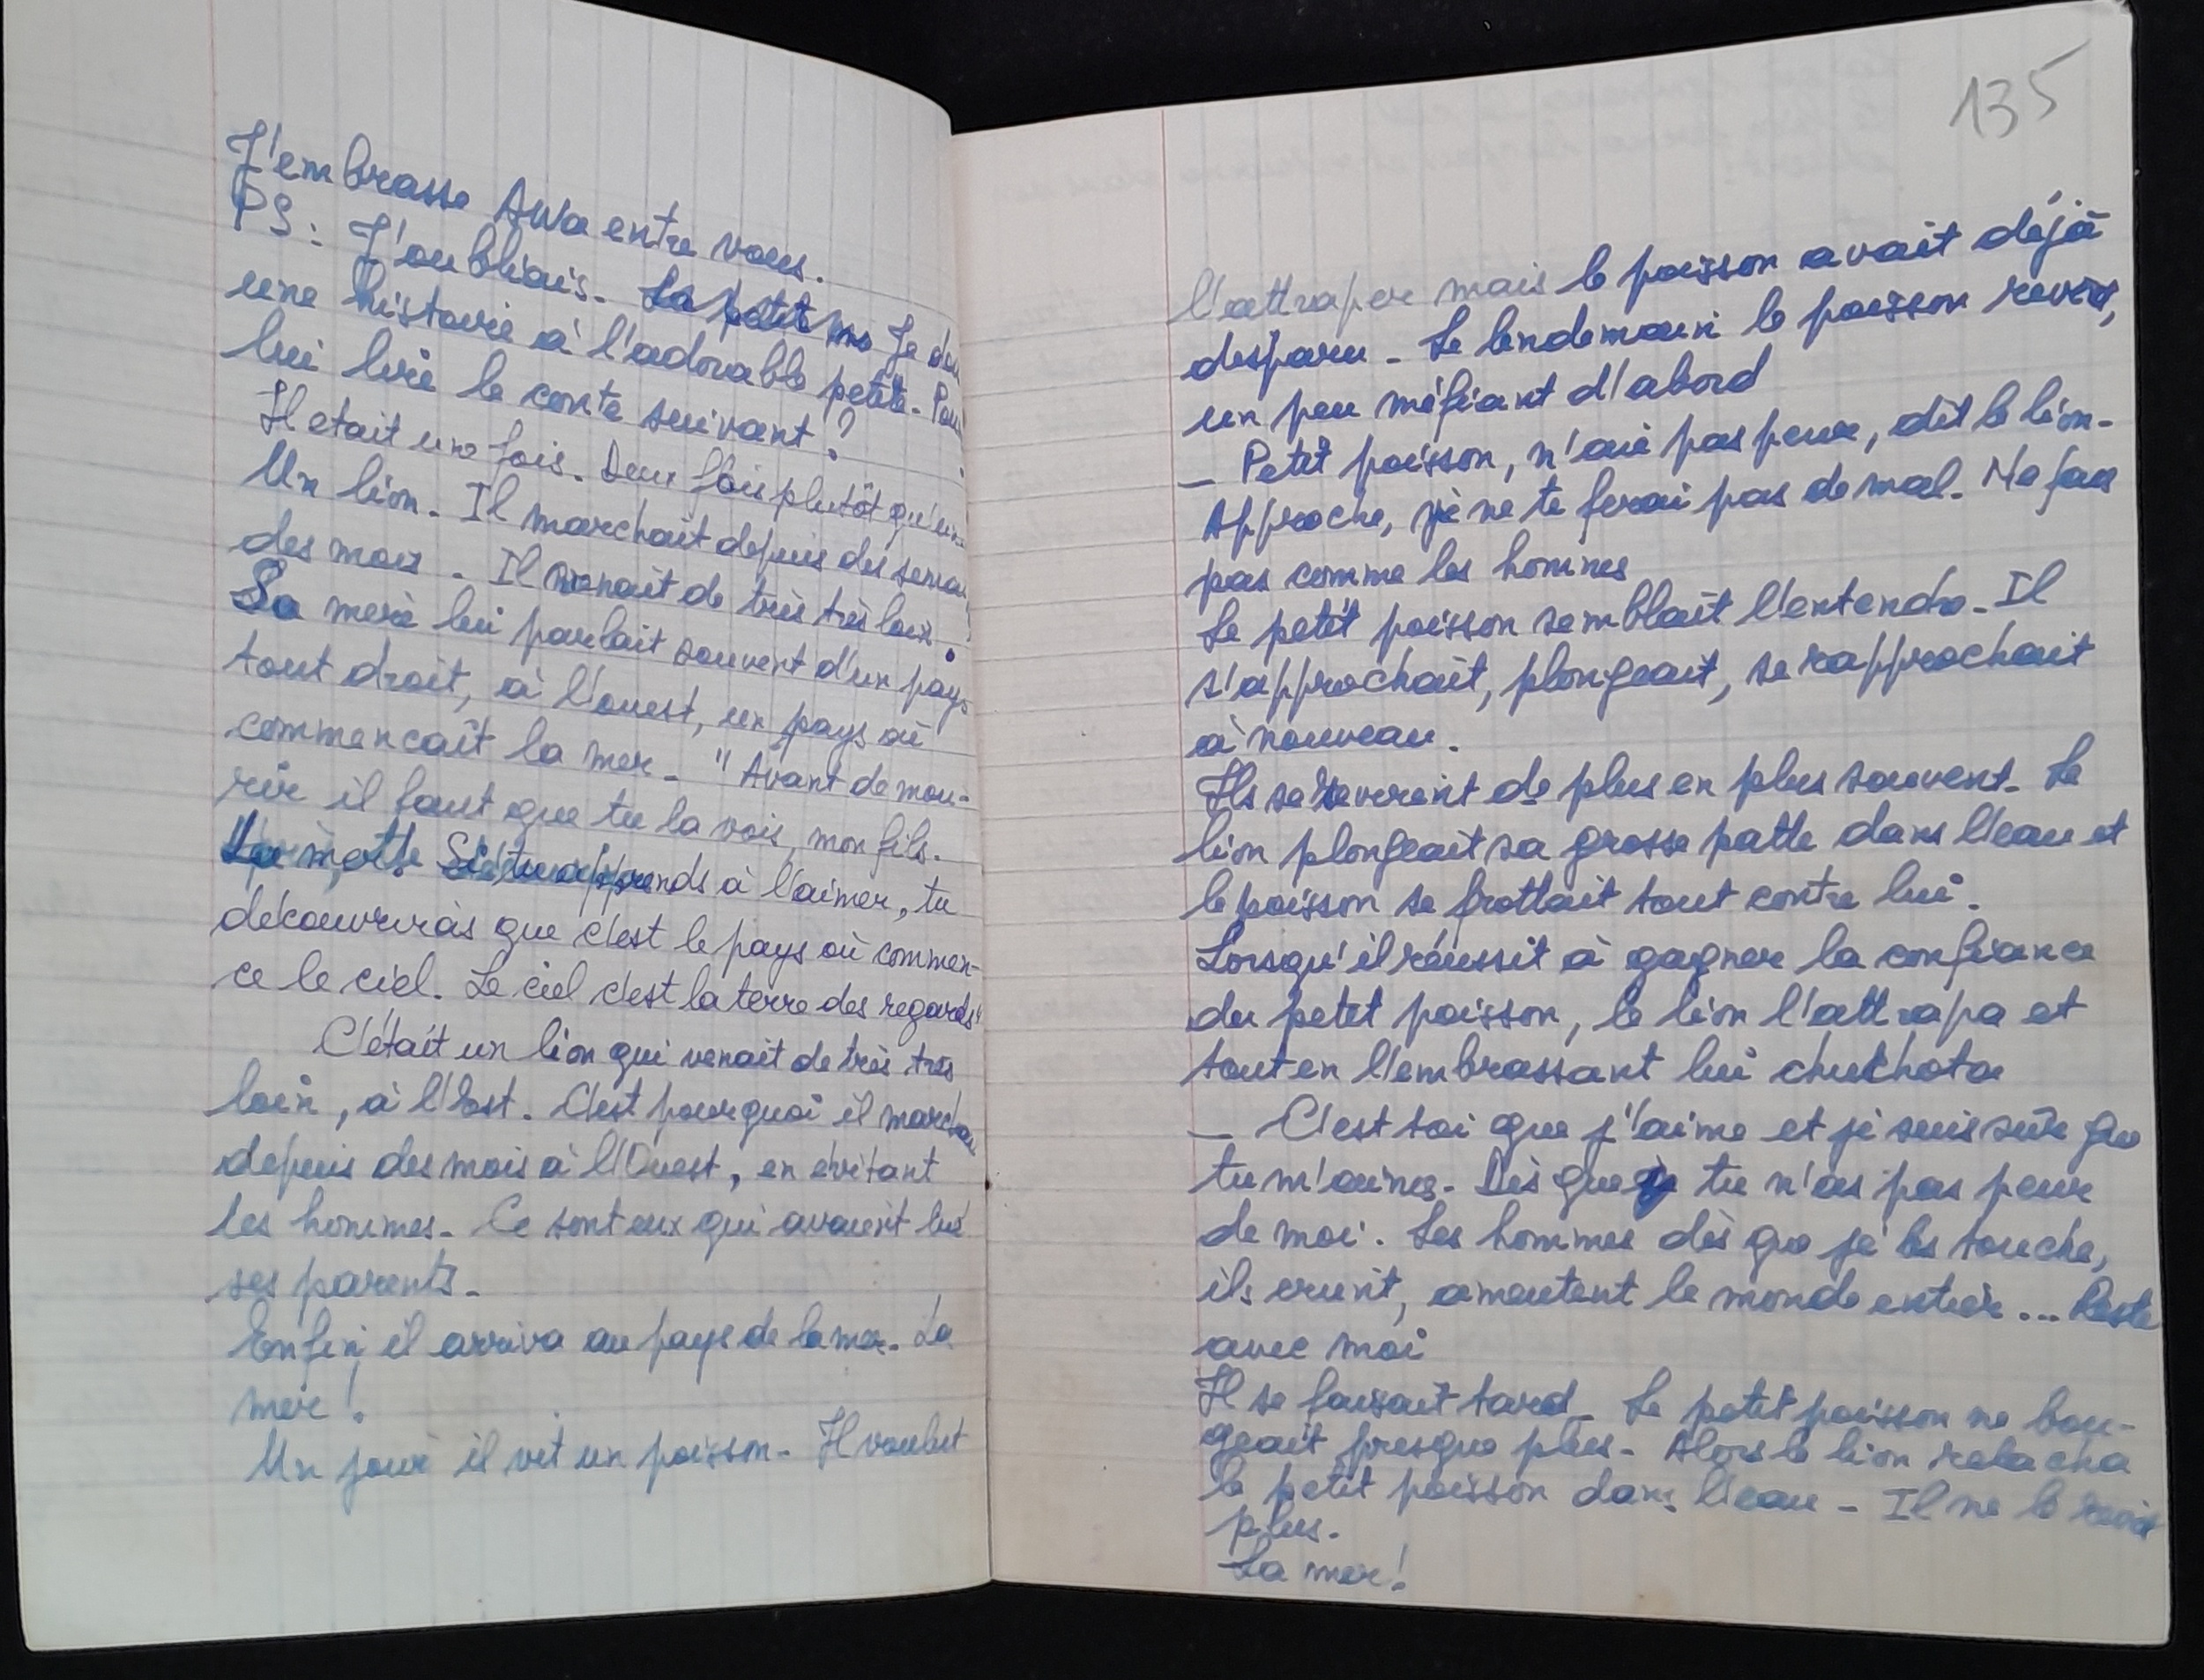 J'embrasse Awa entre vous.
PS: J'oubliais. La petite Je dois
une histoire à l'adorable petite. Peux
lui lire le conte suivant ?
Il etait une fois. Deux fois plutôt qu'une
Un lion. Il marchait depuis des semai
des mois. Il venait de très très loin.
Sa mère lui parlait souvent d'un pays
tout droit, à l'ouest, un pays où
commencait la mer. "Avant de mou-
rir il faut que tu la vois, mon fils.
Si tu apprends à l'aimer, tu
découvriras que c'est le pays où commen-
ce le ciel. Le ciel c'est la terre des regards"
C'était un lion qui venait de très très
loin, à l'Est. C'est pourquoi il marchait
depuis des mois à l'Ouest, en évitant
les hommes. Ce sont eux qui avaient tué
ses parents.
Enfin, il arriva au pays de la mer. La
mer !
Un jour il vit un poisson. Il voulut
135
l'attraper mais le poisson avait déjà
disparu. Le lendemain le poisson revint,
un peu méfiant d'abord
_ Petit poisson, n'aie pas peur, dit le lion.
Approche, je ne te ferai pas de mal. Ne fais
pas comme les hommes
Le petit poisson semblait l'entendre. Il
s'approchait, plongeait, se rapprochait
à nouveau.
Ils se revirent de plus en plus souvent. Le
lion plongeait sa grosse patte dans l'eau et
le poisson se frottait tout contre lui.
Lorsqu'il réussit à gagner la confiance
du petit poisson, le lion l'attrapa et
tout en l'embrassant lui chuchota
_ C'est toi que j'aime et je suis sûr que
tu m'aimes. Dès que tu n'as pas peur
de moi. Les hommes dès que je les touche,
ils crient, ameutent le monde entier... Reste
avec moi
Il se faisait tard. Le petit poisson ne bou-
geait presque plus. Alors le lion relacha
le petit poisson dans l'eau. Il ne le revit
plus.
La mer !